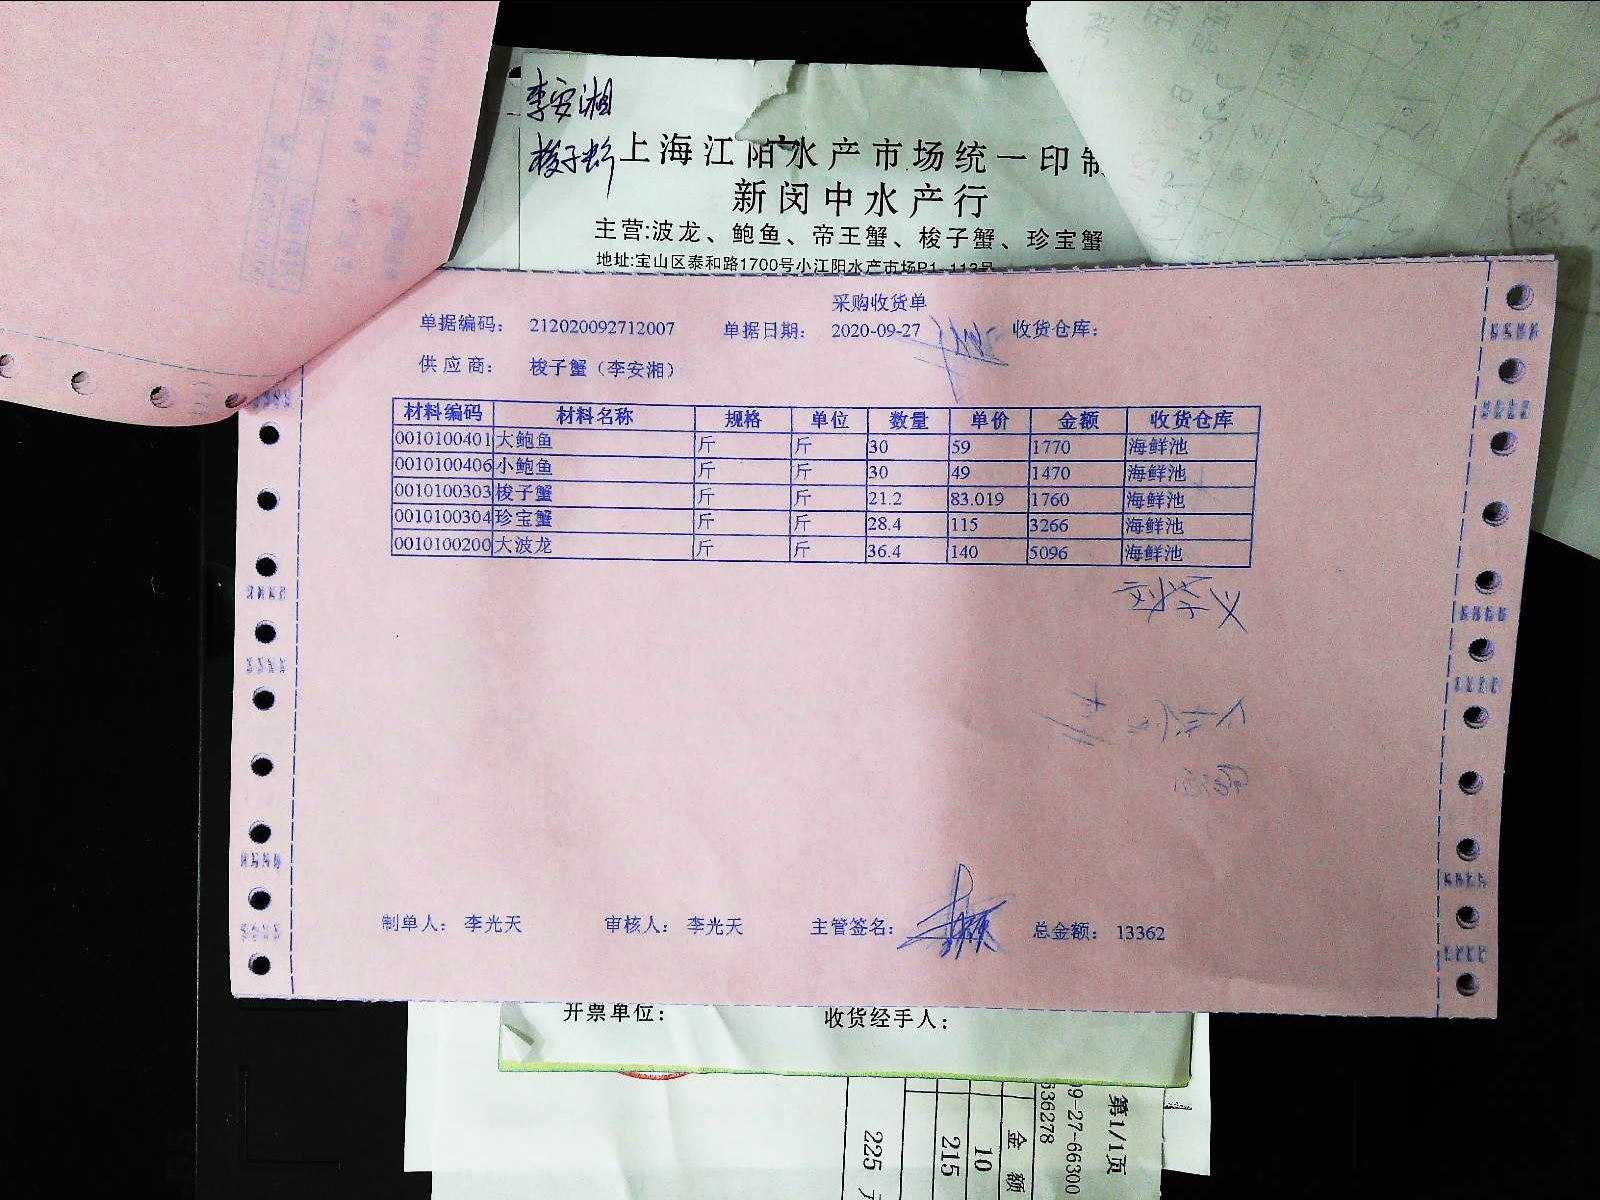 李安湘
梭子蟹
上海江阳水产市场统一印制
新闵中水产行
主营:波龙、鲍鱼、帝王蟹、梭子蟹、珍宝蟹
地址:宝山区泰和路1700号小江阳水产市场P1-113号
采购收货单
单据编码: 212020092712007 单据日期: 2020-09-27 收货仓库:
供应商: 梭子蟹（李安湘）
材料编码 材料名称 规格 单位 数量 单价 金额 收货仓库
0010100401 大鲍鱼 斤 斤 30 59 1770 海鲜池
0010100406 小鲍鱼 斤 斤 30 49 1470 海鲜池
0010100303 梭子蟹 斤 斤 21.2 83.019 1760 海鲜池
0010100304 珍宝蟹 斤 斤 28.4 115 3266 海鲜池
0010100200 大波龙 斤 斤 36.4 140 5096 海鲜池
制单人: 李光天 审核人: 李光天 主管签名: 总金额: 13362
开票单位: 收货经手人:
第1/1页
09-27-66300
636278
金额
10
215
225